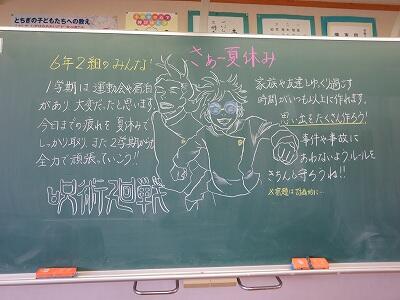 とちぎの子どもたちへの教え
6年2組のみんな!
さぁー夏休み
1学期は運動会や宿泊
があり大変だったと思います
今日までの疲れを夏休みで
しっかり取り、また2学期から
全力で頑張っていこう!!
呪術廻戦
家族や友達とゆっくり過ごす
時間がいつもより人に作れます。
思い出をたくさん作ろう!
事件や事故に
あわないようルールを
きちんと守ろうね!!
※宿題は計画的に…